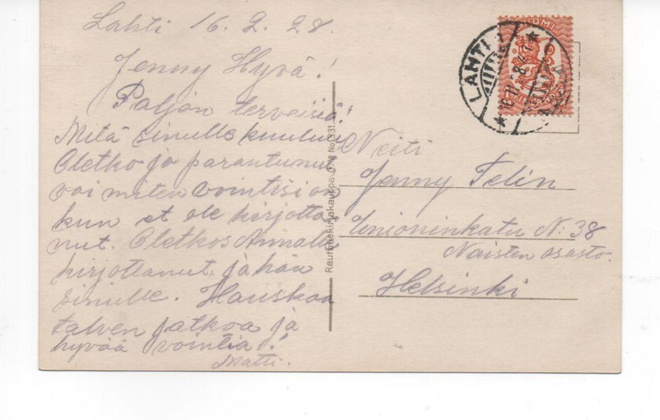 Lahti 16.2.28.
Jenny Hyvä!
Paljon terveisiä!
Mitä sinulle kuuluu
Oletko jo parantunut
vai miten vointisi on
kun et ole kirjotta
nut. Oletkos Annalle
kirjottanut ja hän
sinulle. Hauskaa
talven jatkoa ja
hyvää vointia!
Matti.
Neiti
Jenny Felin
Unioninkatu N:38
Naisten osasto.
Helsinki
LAHTI
SUOMI